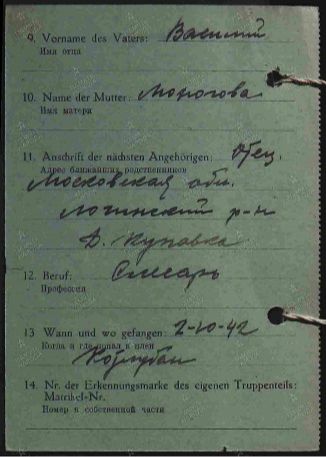 9. Vorname des Vaters: Василий
Имя отца
10. Name der Mutter: Моногова
Имя матери
11. Anschrift der nächsten Angehörigen: Отец,
Адрес ближайших родственников
Московская обл.
Логинский р-н
Д. Купавка
12. Beruf: Слесарь
Профессия
13 Wann und wo gefangen: 2-10-42
Когда и где попал в плен
Котлубан
14. Nr. der Erkennungsmarke des eigenen Truppenteils:
Matrikel-Nr.
Номер в собственной части